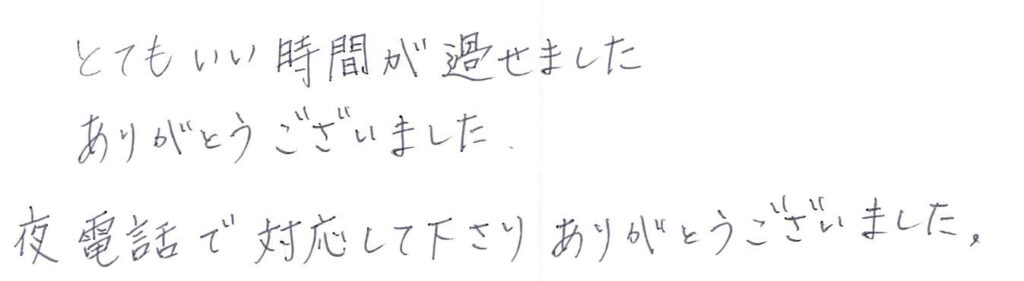 とてもいい時間が過せました
ありがとうございました.
夜電話で対応して下さりありがとうございました。